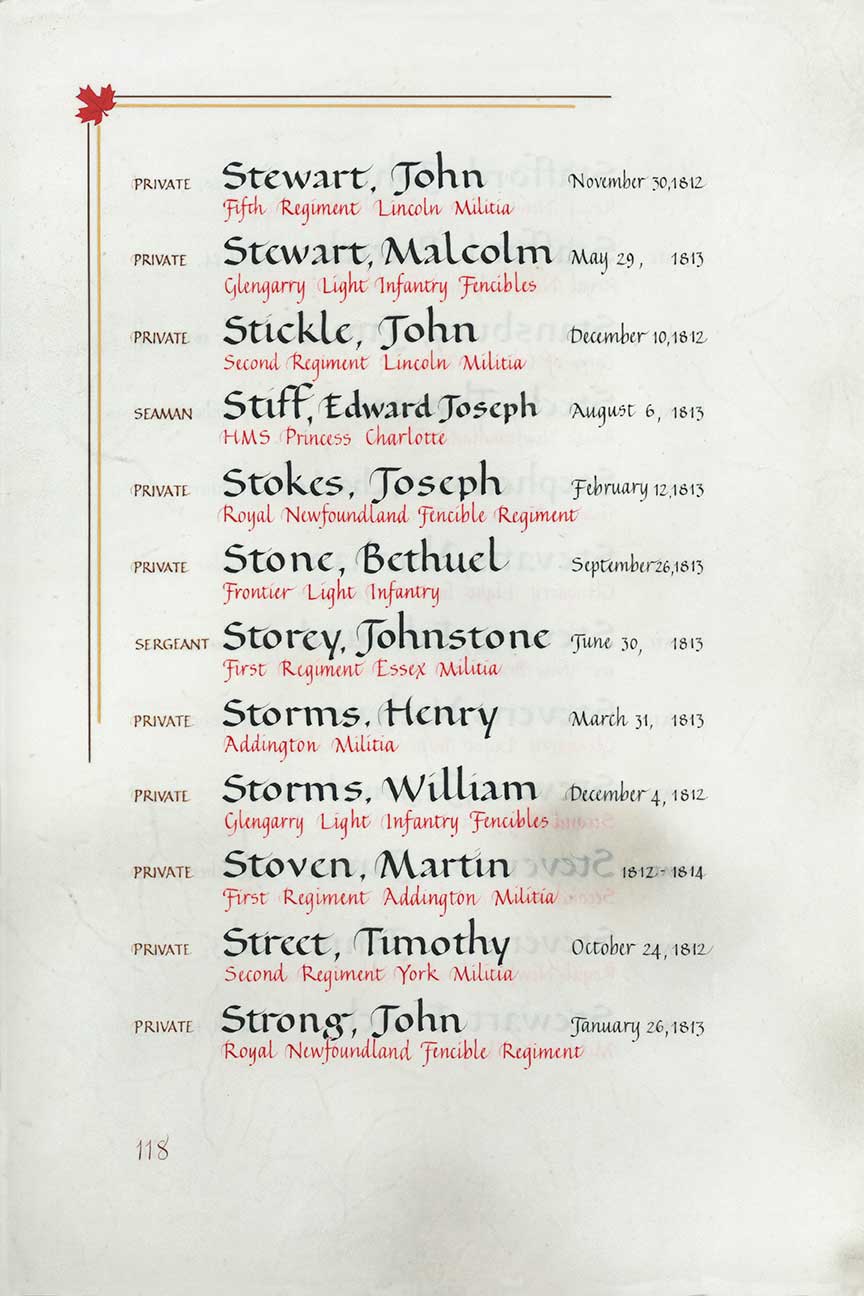 PRIVATE Stewart, John November 30, 1812
Fifth Regiment Lincoln Militia
PRIVATE Stewart, Malcolm May 29, 1813
Glengarry Light Infantry Fencibles
PRIVATE Stickle, John December 10, 1812
Second Regiment Lincoln Militia
SEAMAN Stiff, Edward Joseph August 6, 1813
HMS Princess Charlotte
PRIVATE Stokes, Joseph February 12, 1813
Royal Newfoundland Fencible Regiment
PRIVATE Stone, Bethuel September 26, 1813
Frontier Light Infantry
SERGEANT Storey, Johnstone June 30, 1813
First Regiment Essex Militia
PRIVATE Storms, Henry March 31, 1813
Addington Militia
PRIVATE Storms, William December 4, 1812
Glengarry Light Infantry Fencibles
PRIVATE Stoven, Martin 1812 - 1814
First Regiment Addington Militia
PRIVATE Street, Timothy October 24, 1812
Second Regiment York Militia
PRIVATE Strong, John January 26, 1813
Royal Newfoundland Fencible Regiment
118